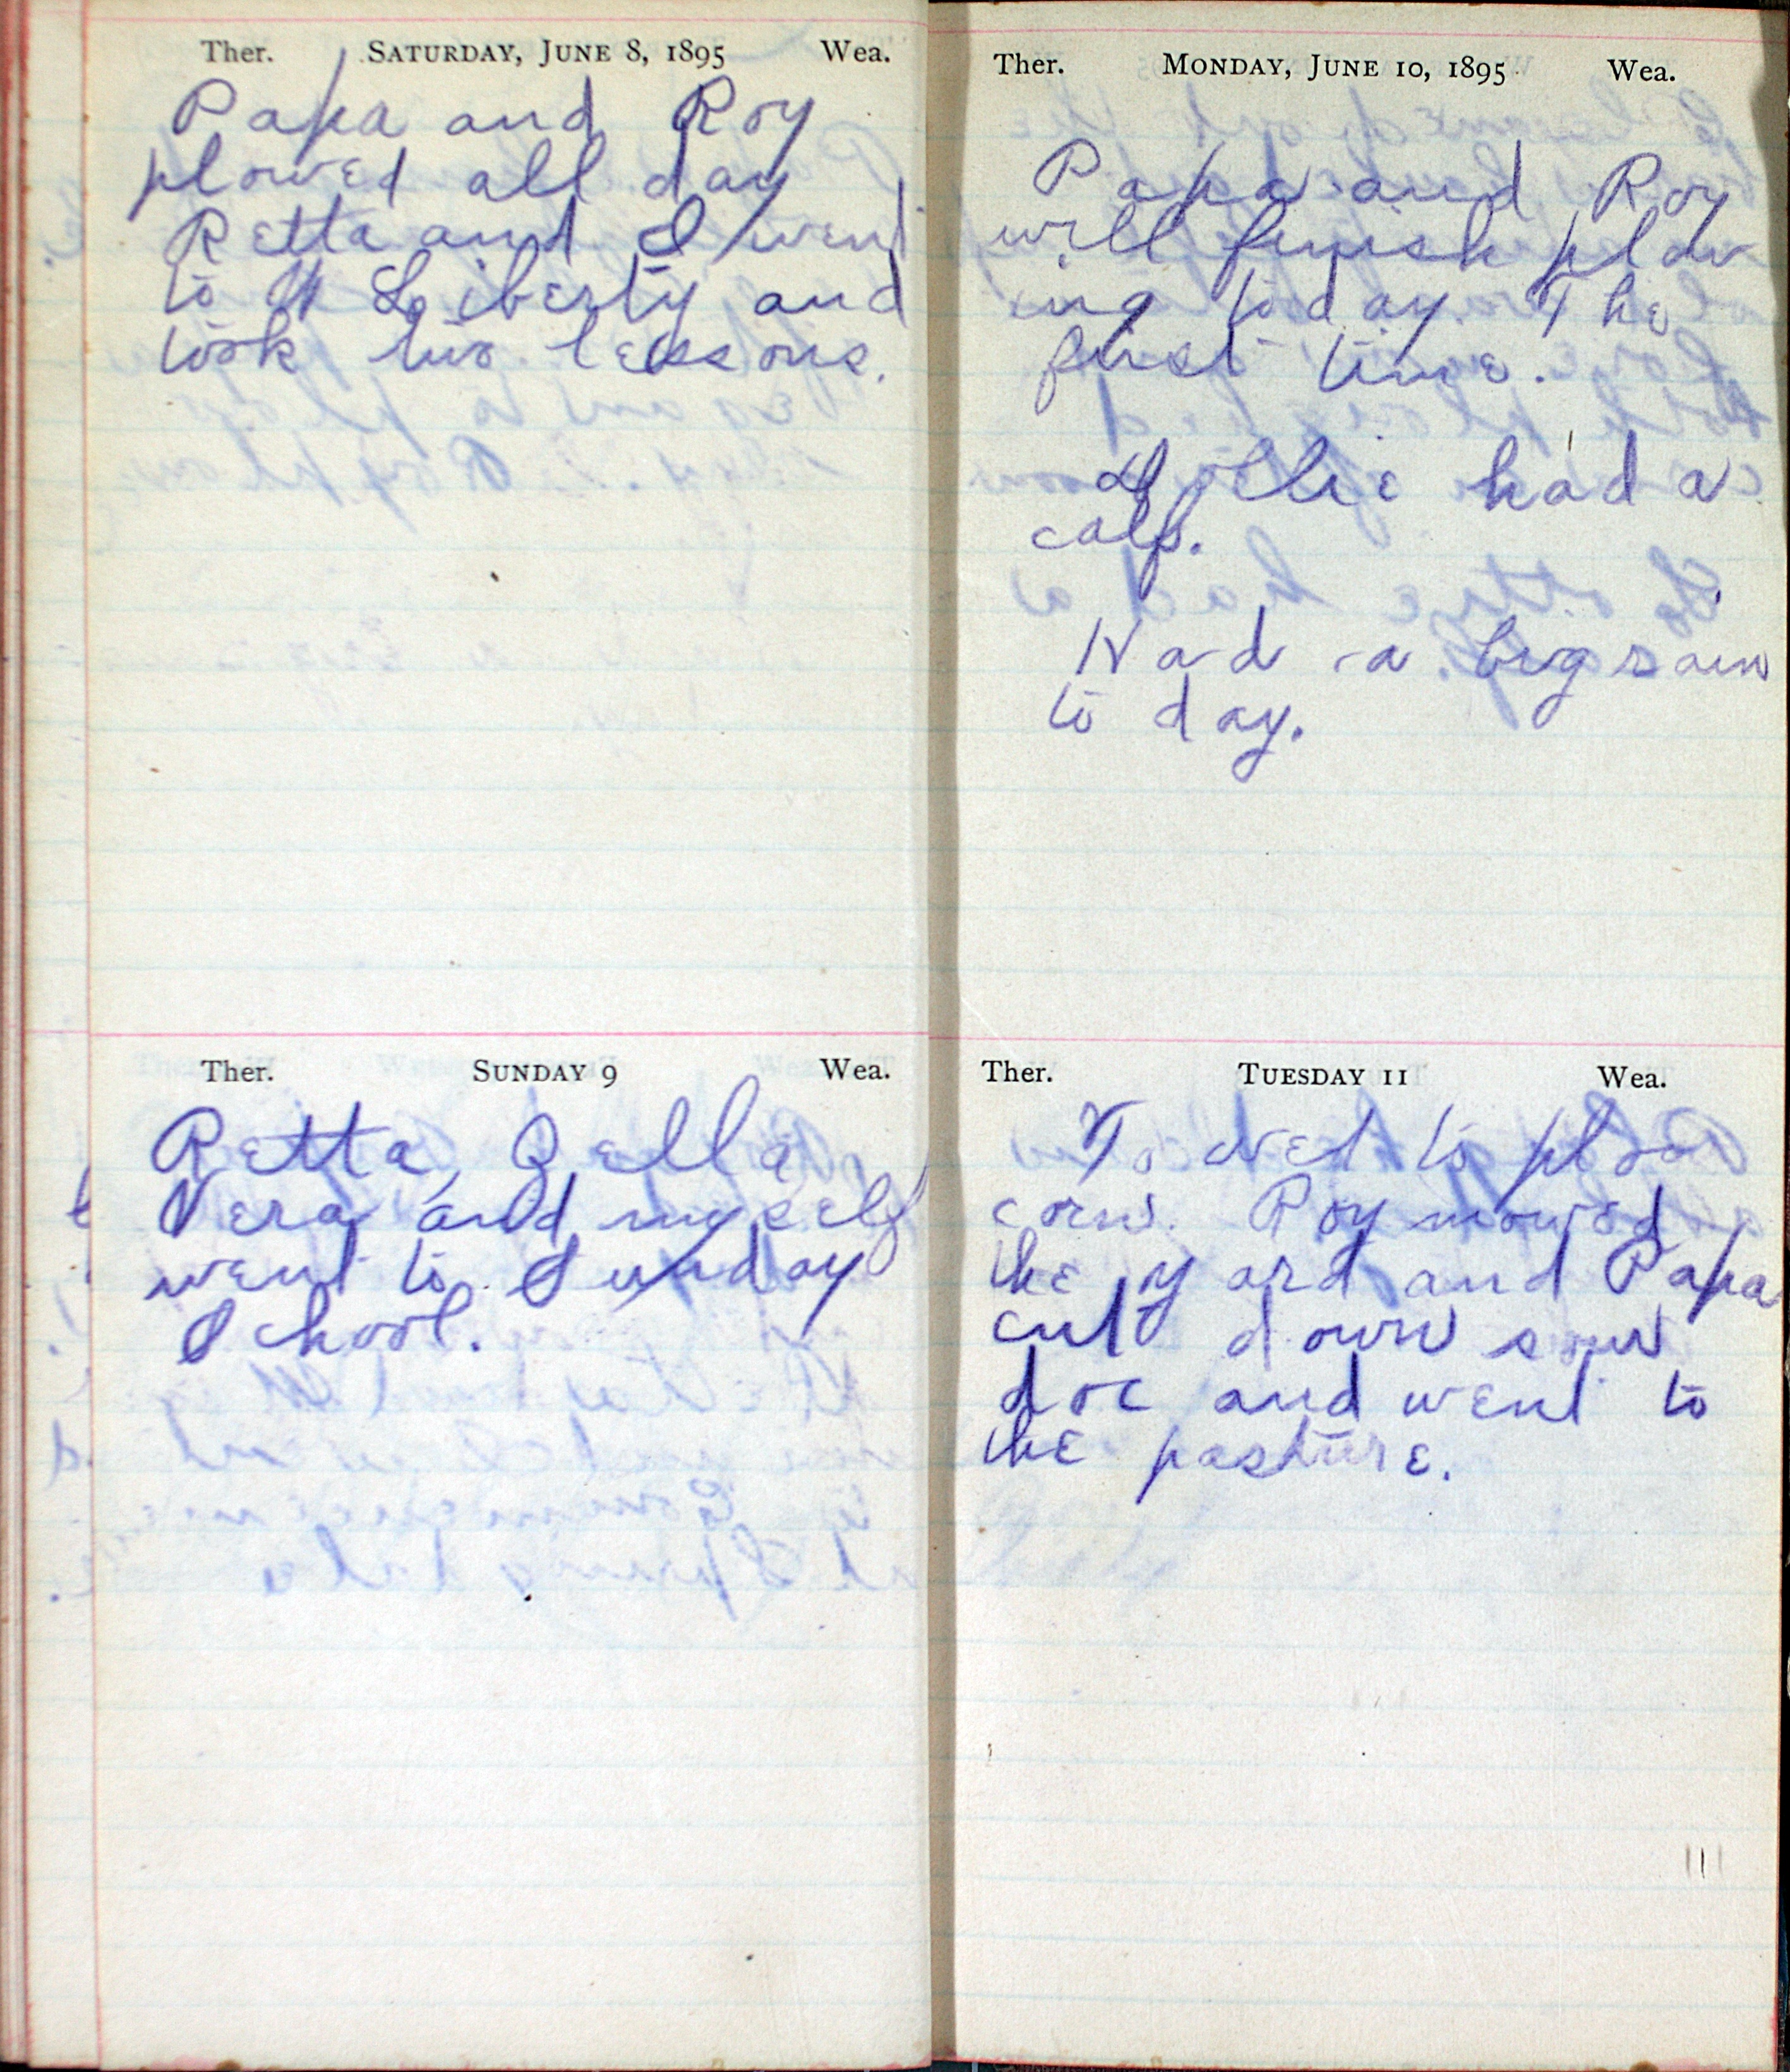 Ther. SATURDAY, JUNE 8, 1895 Wea.
Papa and Roy
plowed all day
Retta and I went
to W Liberty and
took two lessons.
Ther. SUNDAY 9 Wea.
Retta, Zella
Vera and myself
went to Sunday
School.
Ther. MONDAY, JUNE 10, 1895 Wea.
Papa and Roy
will finish plow
ing today. The
first time.
Lollie had a
calf.
Had a big rain
to day.
Ther. TUESDAY 11 Wea.
To wet to plow
corn. Roy mowed
the yard and Papa
cut down sour
doc and went to
the pasture.